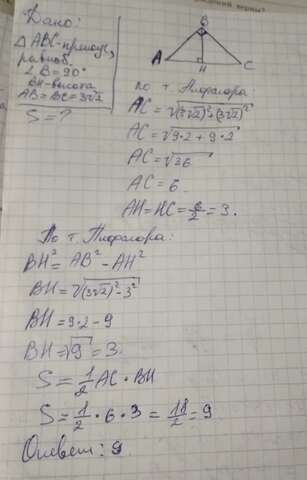 Дано:
△ABC-прямоуг,
равноб.
∠B=90°
BH-высота
AB=BC=3√2
S=?
B
A
H
C
По т. Пифагора:
AC=√(3√2)²+(3√2)²
AC=√9·2+9·2
AC=√36
AC=6
AH=HC=6/2=3.
По т. Пифагора:
BH²=AB²-AH²
BH=√(3√2)²-3²
BH=9·2-9
BH=√9=3.
S=1/2AC·BH
S=1/2·6·3=18/2=9
Ответ: 9.